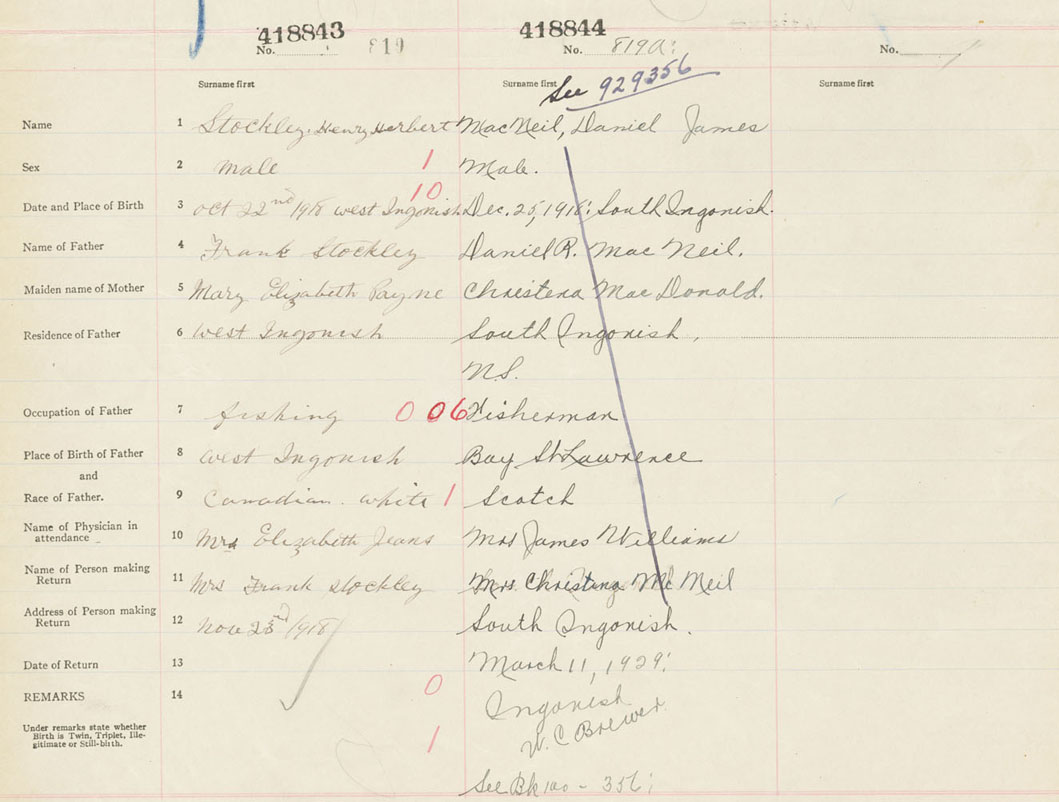 418843 418844
No. 819 No. 819A: No.
Surname first Surname first Surname first
See 929356
Name 1 Stockley, Henry Herbert MacNeil, Daniel James
Sex 2 male 1 Male.
10
Date and Place of Birth 3 oct 22nd 1918 west Ingonish Dec. 25, 1918: South Ingonish.
Name of Father 4 Frank Stockley Daniel R. Mac Neil.
Maiden name of Mother 5 Mary Elizabeth Payne Christena Mac Donald.
Residence of Father 6 west Ingonish South Ingonish,
N.S.
Occupation of Father 7 fishing 0 06 Fisherman
Place of Birth of Father 8 west Ingonish Bay St Lawrence
and
Race of Father. 9 Canadian. white 1 Scotch
Name of Physician in
attendance 10 Mrs Elizabeth Jeans Mrs James Williams
Name of Person making
Return 11 Mrs Frank Stockley Mrs. Christina Mc Neil
Address of Person making
Return 12 Nov 23rd 1918 South Ingonish.
Date of Return 13 March 11, 1929:
REMARKS 14 0 Ingonish
W. C Brewer
Under remarks state whether
Birth is Twin, Triplet, Ille-
gitimate or Still-birth.
1
See Bk 100 - 356: